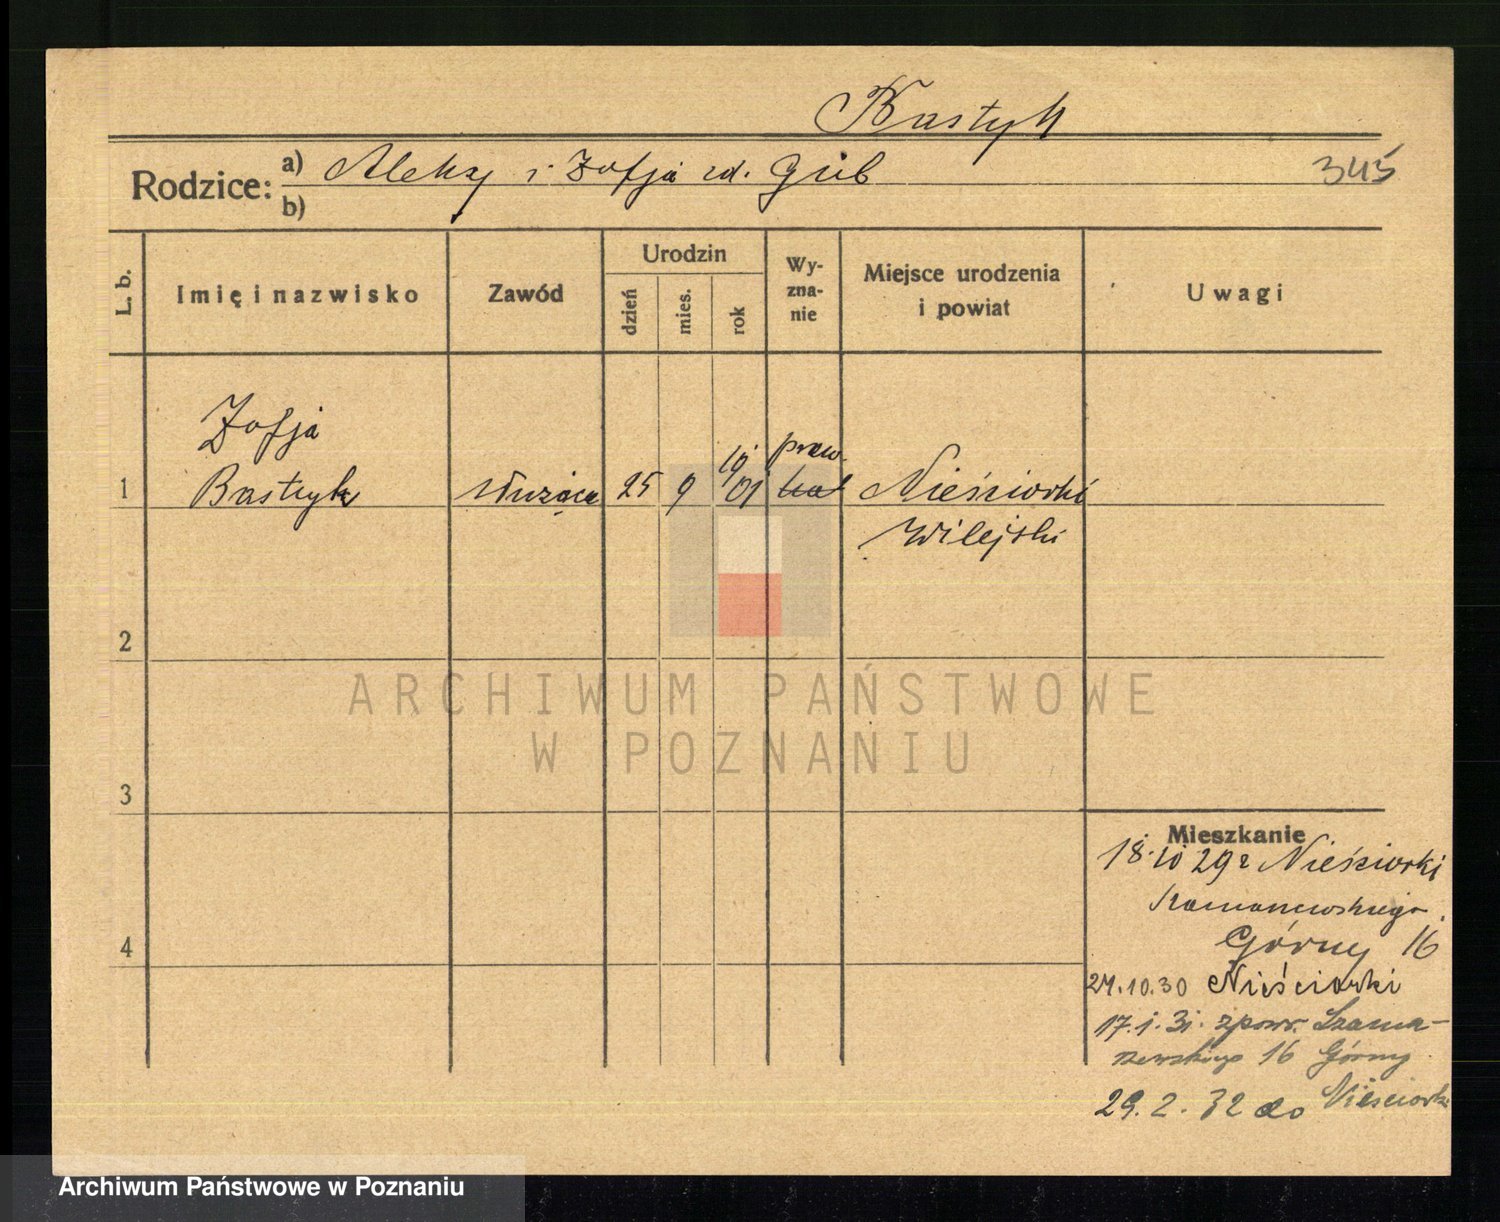 Bastyk
Rodzice: a) Aleksy i Zofja zd. Grib
b)
345
L. b.
Imię i nazwisko
Zawód
Urodzin
dzień
mies.
rok
Wy-
zna-
nie
Miejsce urodzenia
i powiat
Uwagi
Zofja
praw.
1 Bastryk służąca 25 9 1901 kat Nieściorki
Wilejski
2
3
4
Mieszkanie
18.10 29 r Nieściorki
Szamarzewskiego
Górny 16
24.10.30 Nieściorki
17.1.31. zpowr. Szama-
rzewskiego 16 Górny
29.2.32 do Nieściorki
ARCHIWUM PAŃSTWOWE
W POZNANIU
Archiwum Państwowe w Poznaniu